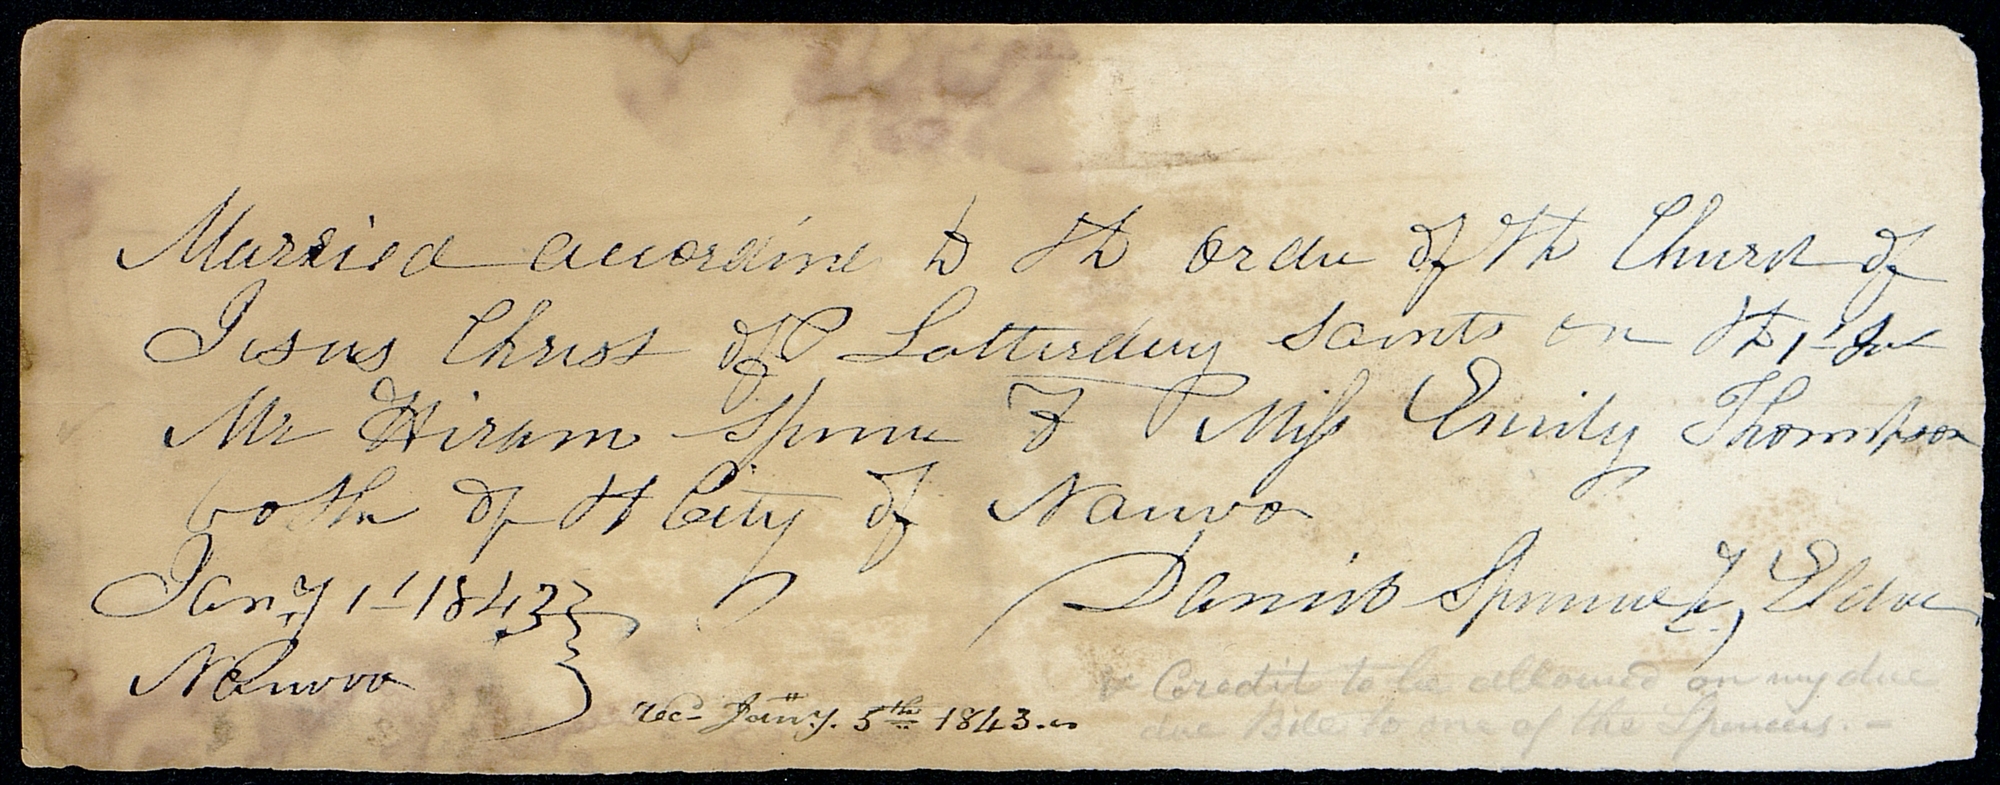 Married according to the order of the Church of
Jesus Christ of Latterday saints on the 1st Inst
Mr Hiram Spencer to Miss Emily Thompson
both of the City of Nauvoo
Daniel Spencer, Elder
Jany 1st 1843
Nauvoo
recd Jany. 5th 1843.
Credit to be allowed on my due
due Bill to one of the Spencers. —